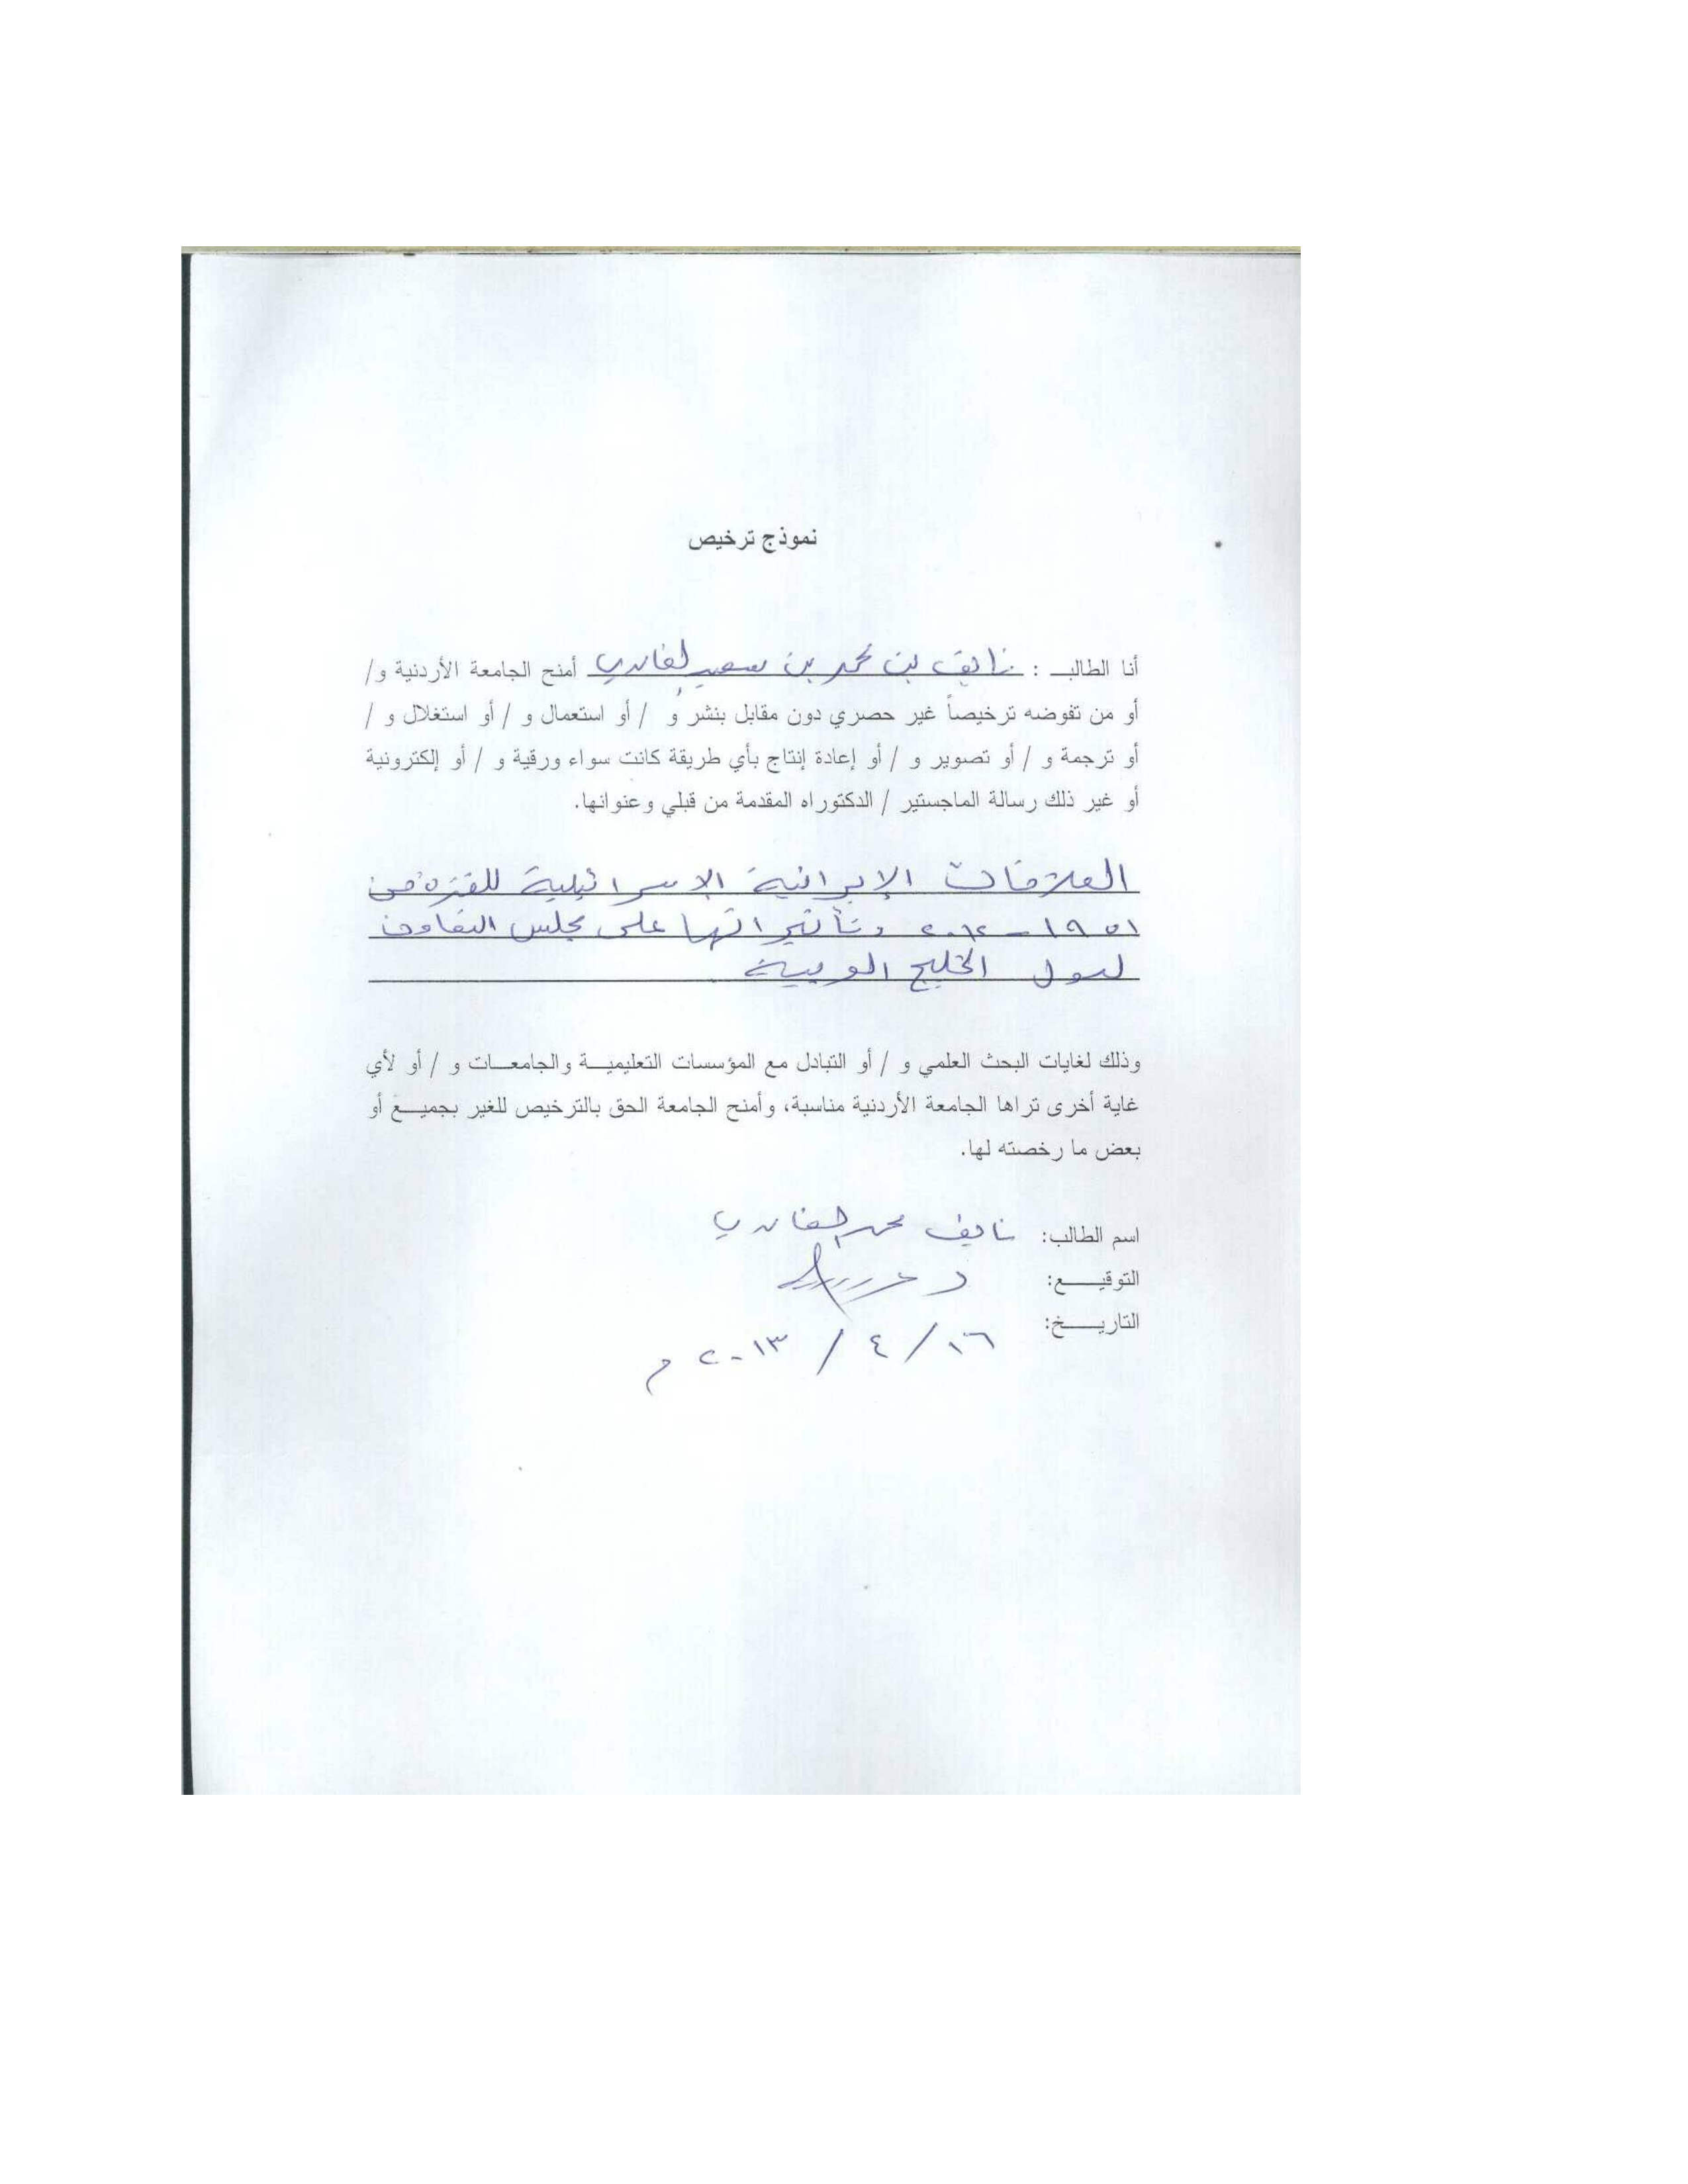 نموذج ترخيص
أنا الطالب : نايف بن محمد بن سعيد الغامدي أمنح الجامعة الأردنية و/
أو من تفوضه ترخيصاً غير حصري دون مقابل بنشر و / أو استعمال و / أو استغلال و /
أو ترجمة و / أو تصوير و / أو إعادة إنتاج بأي طريقة كانت سواء ورقية و / أو إلكترونية
أو غير ذلك رسالة الماجستير / الدكتوراه المقدمة من قبلي وعنوانها.
العلاقات الإيرانية الإسرائيلية للفترة من
١٩٥١ - ٢٠١٢ وتأثيراتها على مجلس التعاون
لدول الخليج العربية
وذلك لغايات البحث العلمي و / أو التبادل مع المؤسسات التعليمية والجامعات و / أو لأي
غاية أخرى تراها الجامعة الأردنية مناسبة، وأمنح الجامعة الحق بالترخيص للغير بجميع أو
بعض ما رخصته لها.
اسم الطالب: نايف محمد الغامدي
التوقيع:
التاريخ: ١٦ / ٤ / ٢٠١٣ م